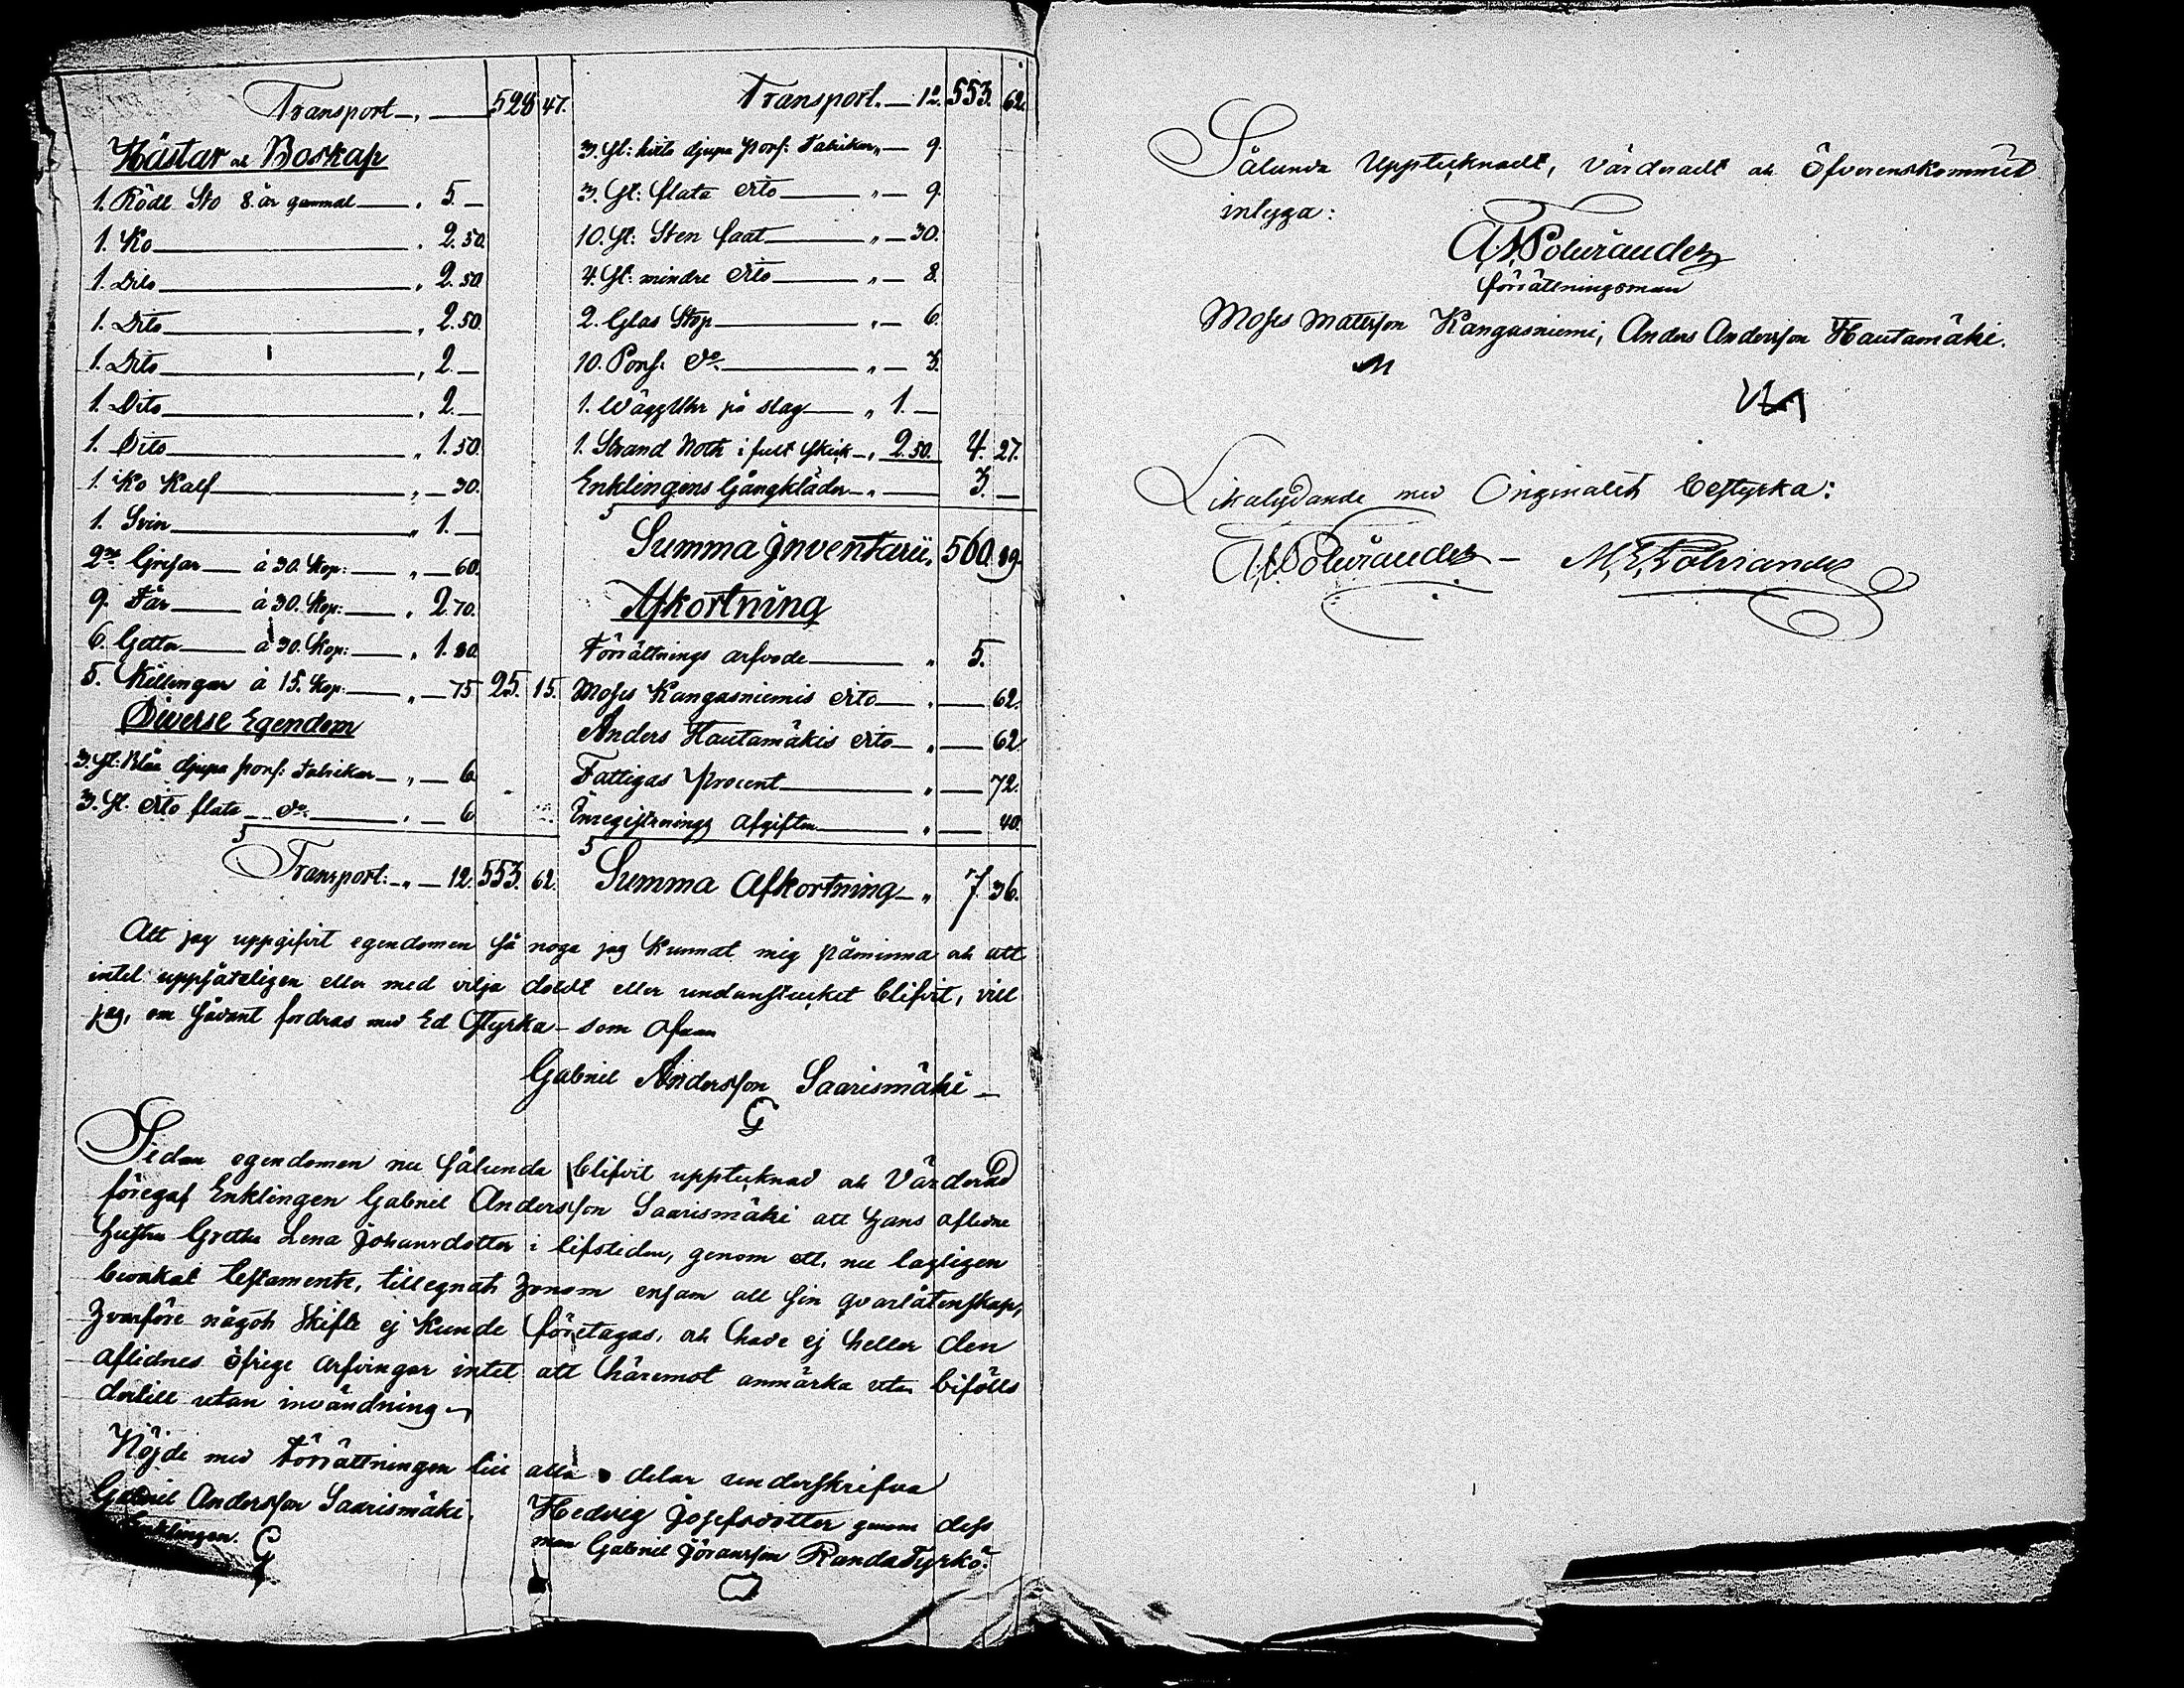 Transport 528 47.
Hästar och Boskap
1. Rödt Sto 8. år gammal " 5. —
1. Ko " 2. 50.
1. Dito " 2. 50
1. Dito " 2. 50
1. Dito " 2. —
1. Dito " 2. —
1. Dito " 1. 50.
1. Ko Kalf " — 30.
1. Svin " 1. —
2ne Grisar — á 30. Kop: — " — 60.
9. Får — á 30. Kop: — " 2. 70.
6. Getter — á 30. Kop: — " 1. 80.
5. Killingar á 15. Kop: — " — 75 25. 15.
Diverse Egendom
3. st: Blåa djupa porsl: Talrikar — " — 6
3. st. dito flata — do — " — 6
Transport: — " — 12. 553. 62.
Transport. — 12. 553. 62.
3. st: hvita djupa porsl: Talrikar " — 9.
3. st: flata dito — " — 9.
10. st: Sten faat — " — 30.
4. st: mindre dito — " — 8.
2. Glas Stop — " — 6.
10. Porsl. do — " — 3.
1. Wägg Uhr på slag — " 1. —
1. Strand Noth i fult skick — " 2. 50. 4. 27.
Enklingens Gångkläder — " — 3. —
Summa Inventarii. 560. 89.
Afkortning
Förrättnings arfvode — " 5.
Moses Kangasniemis dito — " — 62.
Anders Hautamäkis dito — " — 62
Fattigas procent — " — 72.
Inregistrerings afgiften — " — 40.
Summa Afkortning — " 7. 36.
Att jag uppgifvit egendomen så noga jag kunnat mig påminna och att
intet uppsåteligen eller med vilja doldt eller undanstucket blifvit, vill
jag, om såvant fordras med Ed styrka — som ofvan
Gabriel Andersson Saarismäki —
G
Sedan egendomen nu sålunda blifvit upptecknad och Värderad
föregaf Enklingen Gabriel Andersson Saarismäki att hans aflidne
hustru Gretha Lena Johansdotter i lifstiden, genom ett, nu lagligen
bevakat testamente, tillegnat honom ensam all sin qvarlåtenskap,
hvarföre något Skifte ej kunde företagas, och hade ej heller den
aflidnes öfrige arfvingar intet att häremot anmärka utan biföllo
dertill utan invändning
Nöjde med Förrättningen till alla delar underskrifva
Gabriel Andersson Saarismäki.
Enklingen.
G
Hedvig Josefsdotter genom dess
man Gabriel Göransson Randa Tyrkö.
Sålunda Upptecknadt, Värderadt och Öfverenskommit
intyga:
förrättningsman
Moses Matsson Kangasniemi, Anders Andersson Hautamäki.
Likalydande med Originalet bestyrka: